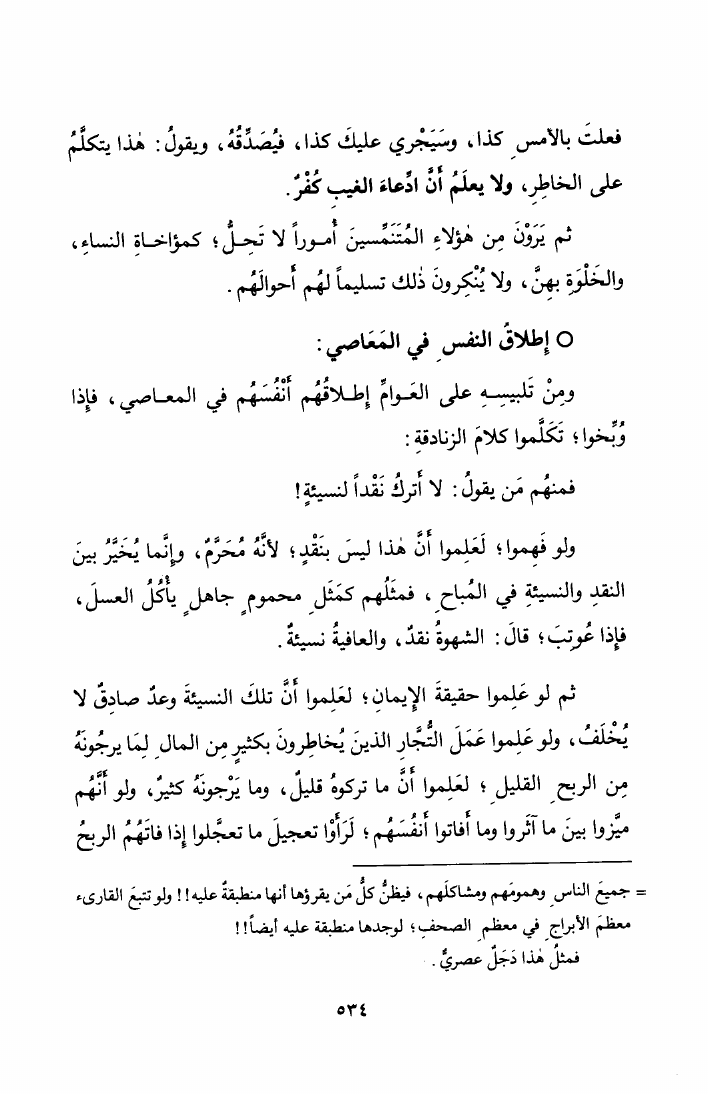 فعلتَ بالأمسِ كذا، وسَيَجْري عليكَ كذا، فيُصَدِّقُهُ، ويقولُ: هٰذا يتكلَّمُ
على الخاطِرِ، ولا يعلَمُ أَنَّ ادِّعاءَ الغيبِ كُفْرٌ.
ثم يَرَوْنَ مِن هٰؤلاءِ المُتَنَمِّسينَ أُموراً لا تَحِلُّ؛ كمؤاخاةِ النساءِ،
والخَلْوَةِ بهِنَّ، ولا يُنْكِرونَ ذٰلك تسليماً لهُم أَحوالَهُم.
○ إِطلاقُ النفسِ في المَعَاصي:
ومِنْ تَلبيسِهِ على العَوامِّ إِطلاقُهُم أَنْفُسَهُم في المعاصي، فإِذا
وُبِّخوا؛ تَكَلَّموا كلامَ الزنادقةِ:
فمنهُم مَن يقولُ: لا أَتركُ نَقْداً لنسيئةٍ!
ولو فَهِموا؛ لَعَلِموا أَنَّ هٰذا ليسَ بنَقْدٍ؛ لأنَّهُ مُحَرَّمٌ، وإِنَّما يُخَيَّرُ بينَ
النقدِ والنسيئةِ في المُباحِ، فمثَلُهم كمَثَلِ محمومٍ جاهلٍ يأْكُلُ العسلَ،
فإِذا عُوتِبَ؛ قالَ: الشهوةُ نقدٌ، والعافيةُ نسيئةٌ.
ثم لو عَلِموا حقيقةَ الإِيمانِ؛ لعَلِموا أَنَّ تلكَ النسيئةَ وعدٌ صادِقٌ لا
يُخْلَفُ، ولو عَلِموا عَمَلَ التُّجَّارِ الذينَ يُخاطِرونَ بكثيرٍ مِن المالِ لِمَا يرجُونَهُ
مِن الربحِ القليلِ؛ لعَلِموا أَنَّ ما تركوهُ قليلٌ، وما يَرْجونَهُ كثيرٌ، ولو أَنَّهُم
ميَّزوا بينَ ما آثَروا وما أَفاتوا أَنْفُسَهُم؛ لَرَأَوْا تعجيلَ ما تعجَّلوا إِذا فاتَهُمُ الربحُ
= جميعَ الناسِ وهمومَهم ومشاكلَهم، فيظنُّ كلُّ مَن يقرؤها أنها منطبقةٌ عليه!! ولو تتبعَ القارىء
معظمَ الأبراجِ في معظمِ الصحفِ؛ لوجدها منطبقة عليه أيضاً!!
فمثلُ هٰذا دَجَلٌ عصريٌّ.
٥٣٤